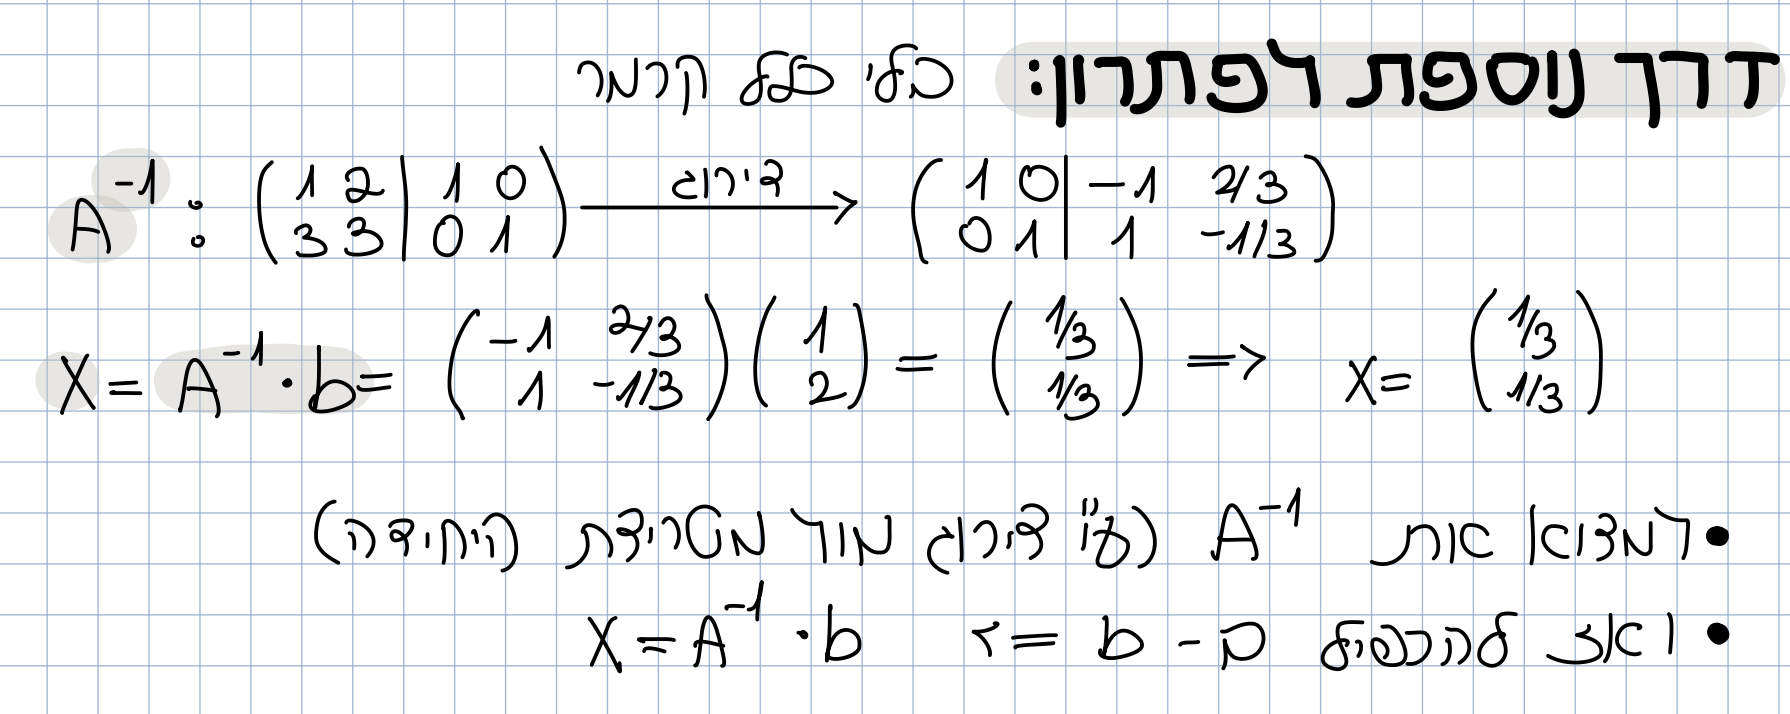 דרך נוספת לפתרון: בלי כלל קרמר
A⁻¹ : ( 1 2 | 1 0 ) דירוג → ( 1 0 | -1 2/3 )
( 3 3 | 0 1 ) ( 0 1 | 1 -1/3 )
X = A⁻¹ · b = ( -1 2/3 ) ( 1 ) = ( 1/3 ) ⇒ X = ( 1/3 )
( 1 -1/3 ) ( 2 ) ( 1/3 ) ( 1/3 )
• למצוא את A⁻¹ (ע"י דירוג מול מטריצת היחידה)
• ואז להכפיל ב - b <= X = A⁻¹ · b